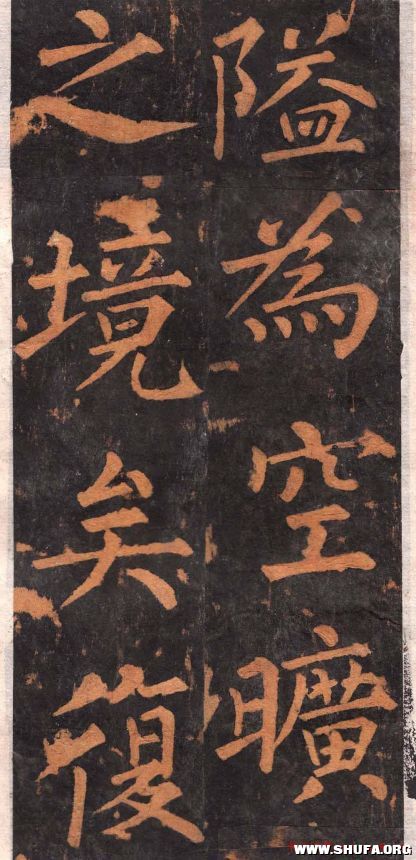 隘為空曠
之境矣復
WWW.SHUFA.ORG